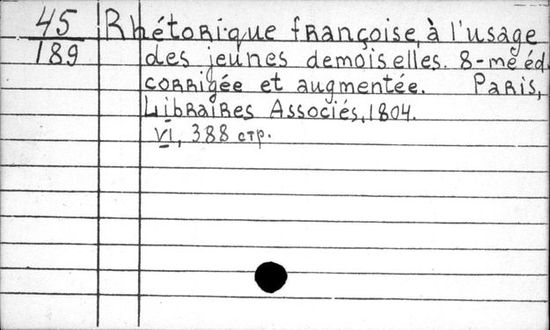 45 Rhétorique françoise, à l'usage
189 des jeunes demoiselles. 8-me éd.
corrigée et augmentée. Paris,
Libraires Associés, 1804.
VI, 388 стр.